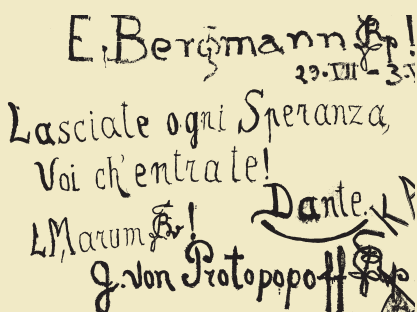 E. Bergmann
29·VII-
Lasciate ogni Speranza,
Voi ch'entrate!
Dante.
L. Marum
G. von Protopopoff